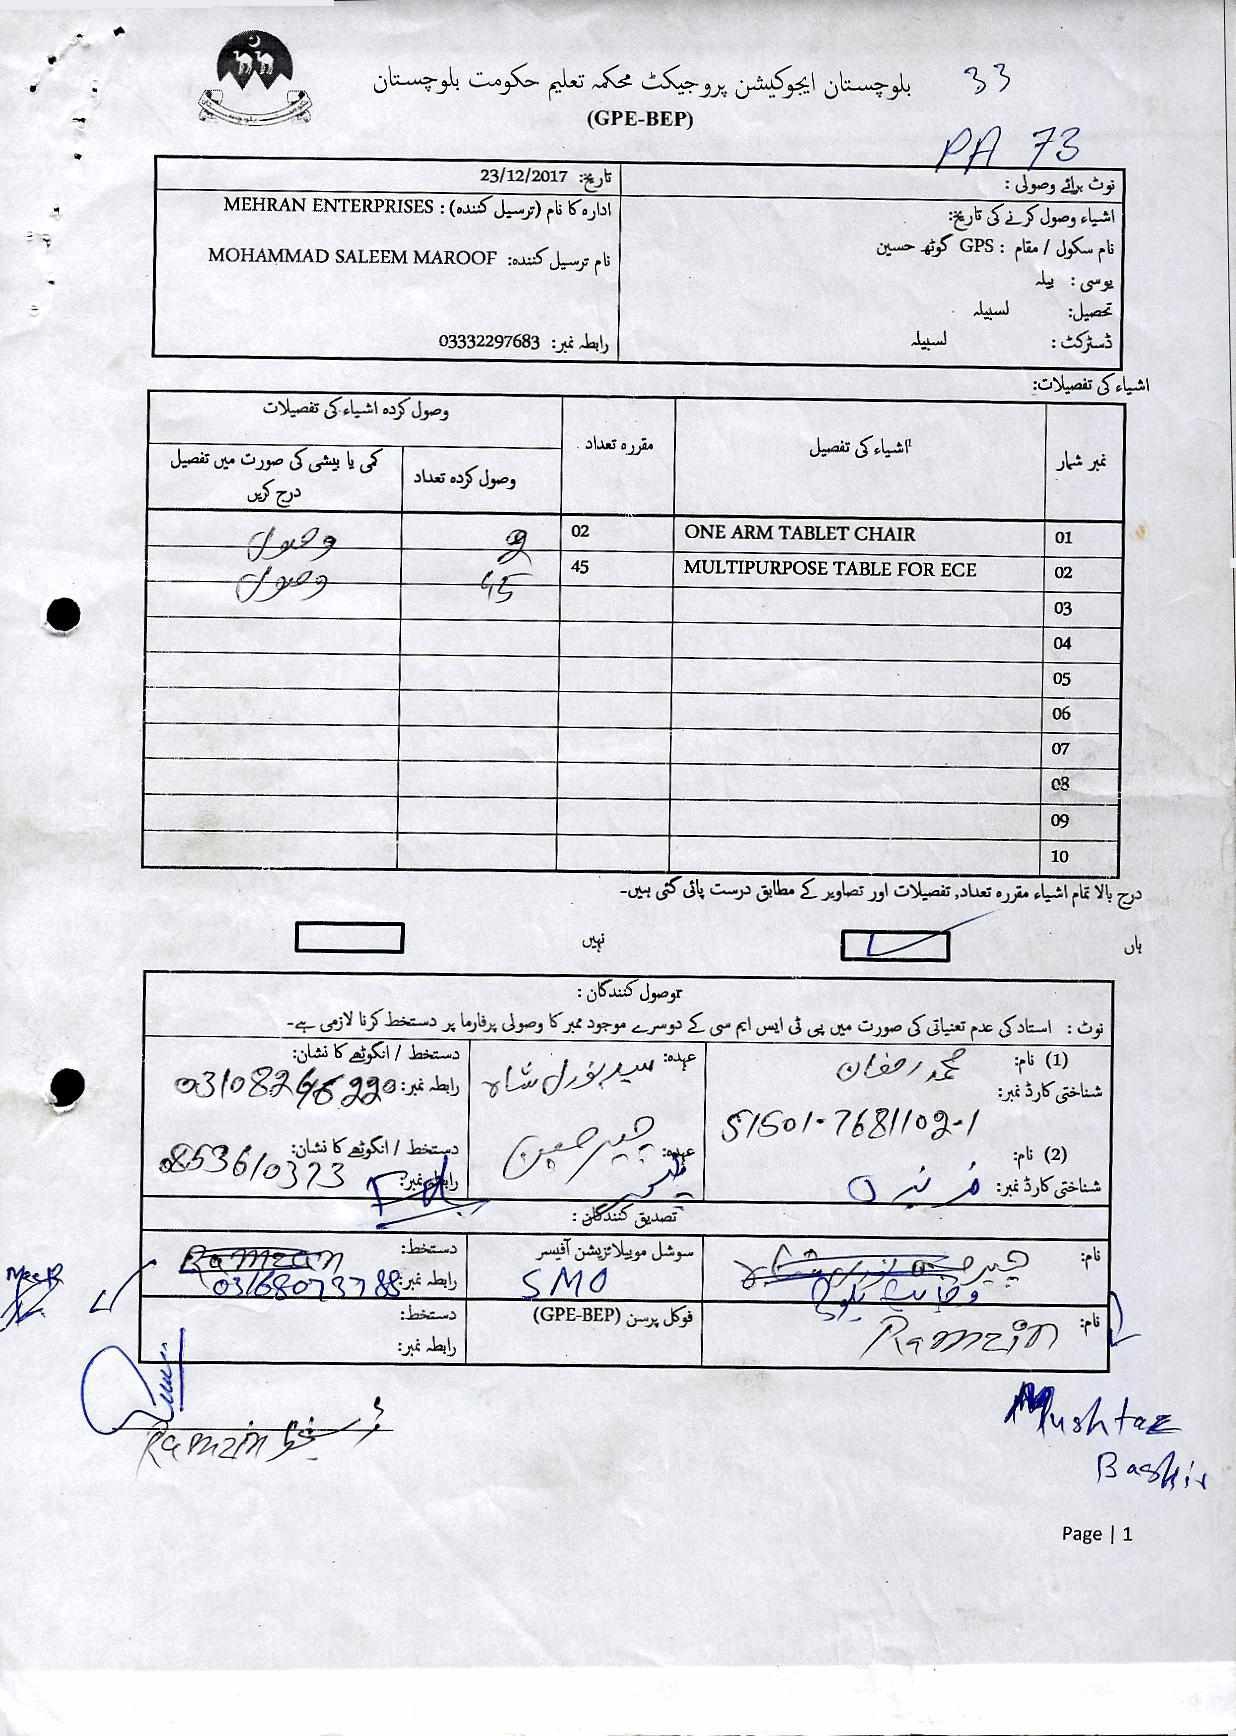 بلوچستان ایجوکیشن پروجیکٹ محکمہ تعلیم حکومت بلوچستان
33
(GPE-BEP)
PA 73
نوٹ برائے وصولی :
تاریخ: 23/12/2017
اشیاء وصول کرنے کی تاریخ:
ادارہ کا نام (ترسیل کنندہ) : MEHRAN ENTERPRISES
نام سکول / مقام : GPS گوٹھ حسین
نام ترسیل کنندہ: MOHAMMAD SALEEM MAROOF
یوسی : بیلہ
تحصیل: لسبیلہ
ڈسٹرکٹ : لسبیلہ
رابطہ نمبر: 03332297683
اشیاء کی تفصیلات:
نمبر شمار اشیاء کی تفصیل مقررہ تعداد وصول کردہ اشیاء کی تفصیلات
وصول کردہ تعداد کمی یا بیشی کی صورت میں تفصیل
درج کریں
01 ONE ARM TABLET CHAIR 02 2 وصول
02 MULTIPURPOSE TABLE FOR ECE 45 45 وصول
03
04
05
06
07
08
09
10
درج بالا تمام اشیاء مقررہ تعداد, تفصیلات اور تصاویر کے مطابق درست پائی گئی ہیں۔
ہاں نہیں
وصول کنندگان :
نوٹ : استاد کی عدم تعنیاتی کی صورت میں پی ٹی ایس ایم سی کے دوسرے موجود ممبر کا وصولی پرفارما پر دستخط کرنا لازمی ہے۔
(1) نام: محمد رمضان عہدہ: سید نورل شاہ دستخط / انگوٹھے کا نشان:
شناختی کارڈ نمبر: رابطہ نمبر:
51501-7681102-1
(2) نام: عہدہ: دستخط / انگوٹھے کا نشان:
شناختی کارڈ نمبر: رابطہ نمبر: 0853610373
تصدیق کنندگان :
نام: سوشل موبیلائزیشن آفیسر دستخط: Ramzan
SMO رابطہ نمبر: 03168073788
نام: Ramzin فوکل پرسن (GPE-BEP) دستخط:
رابطہ نمبر:
Ramzin
Mushtaz
Bashir
Page | 1